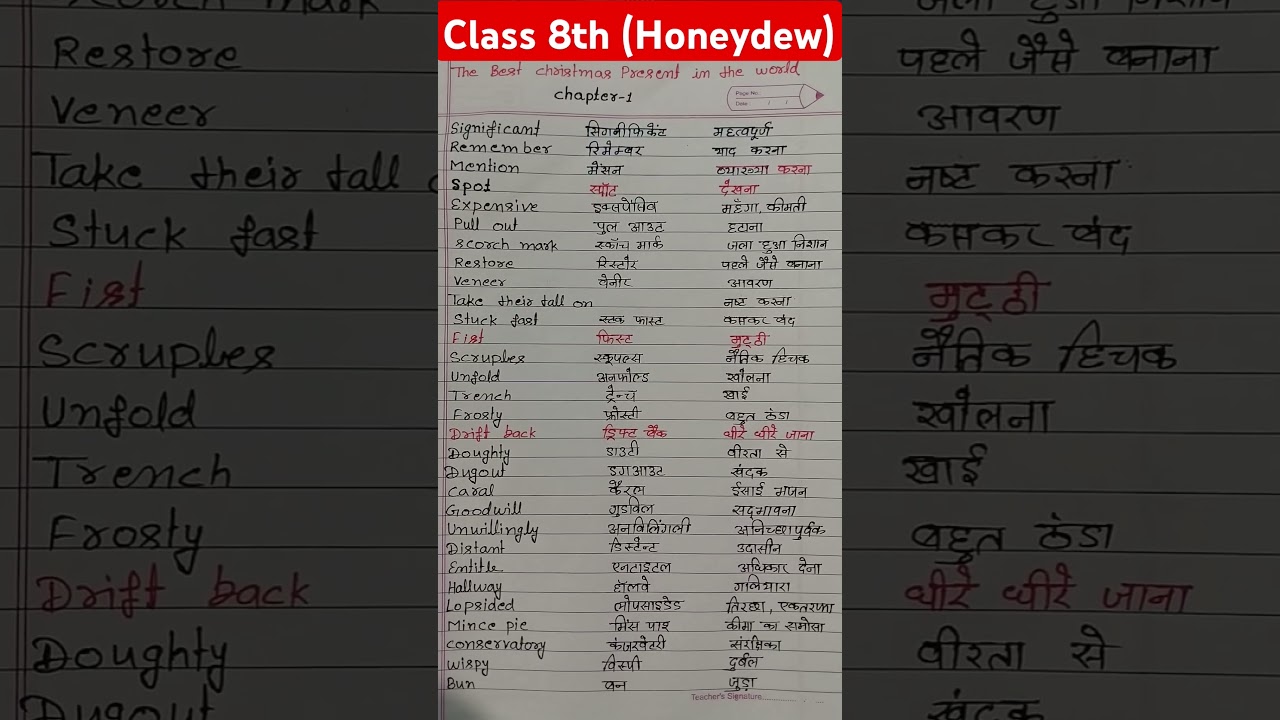 Class 8th (Honeydew)
The Best christmas Present in the world
chapter-1
Page No.:
Date: / /
Significant सिगनीफिकेंट महत्वपूर्ण
Remember रिमेम्बर याद करना
Mention मेंसन व्याख्या करना
Spot स्पॉट देखना
Expensive इक्सपेंसिव महँगा, कीमती
Pull out पुल आउट हटाना
Scorch mark स्कॉच मार्क जला हुआ निशान
Restore रिस्टौर पहले जैसे बनाना
Veneer वेनीर आवरण
Take their tall on नष्ट करना
Stuck fast स्टक फास्ट कसकर बंद
Fist फिस्ट मुट्ठी
Scruples स्क्रूपल्स नैतिक हिचक
Unfold अनफोल्ड खोलना
Trench ट्रेन्च खाई
Frosty फ्रोस्टी बहुत ठंडा
Drift back ड्रिफ्ट बैक धीरे धीरे जाना
Doughty डाउटी वीरता से
Dugout डगआउट खंदक
Caral कैरल ईसाई भजन
Goodwill गुडविल सदभावना
Unwillingly अनविलिंगली अनिच्छापुर्वक
Distant डिस्टेन्ट उदासीन
Entitle एनटाइटल अधिकार देना
Hallway हॉलवे गलियारा
Lopsided लोपसाइडेड तिरछा, एकतरफा
Mince pie मिंस पाइ कीमा का समोसा
conservatory कंजरवेटरी संरक्षिका
Wispy विस्पी दुर्बल
Bun बन जुड़ा
Teacher's Signature
Restore पहले जैसे बनाना
Veneer आवरण
Take their tall नष्ट करना
Stuck fast कसकर बंद
Fist मुट्ठी
Scruples नैतिक हिचक
Unfold खोलना
Trench खाई
Frosty बहुत ठंडा
Drift back धीरे धीरे जाना
Doughty वीरता से
Dugout खंदक